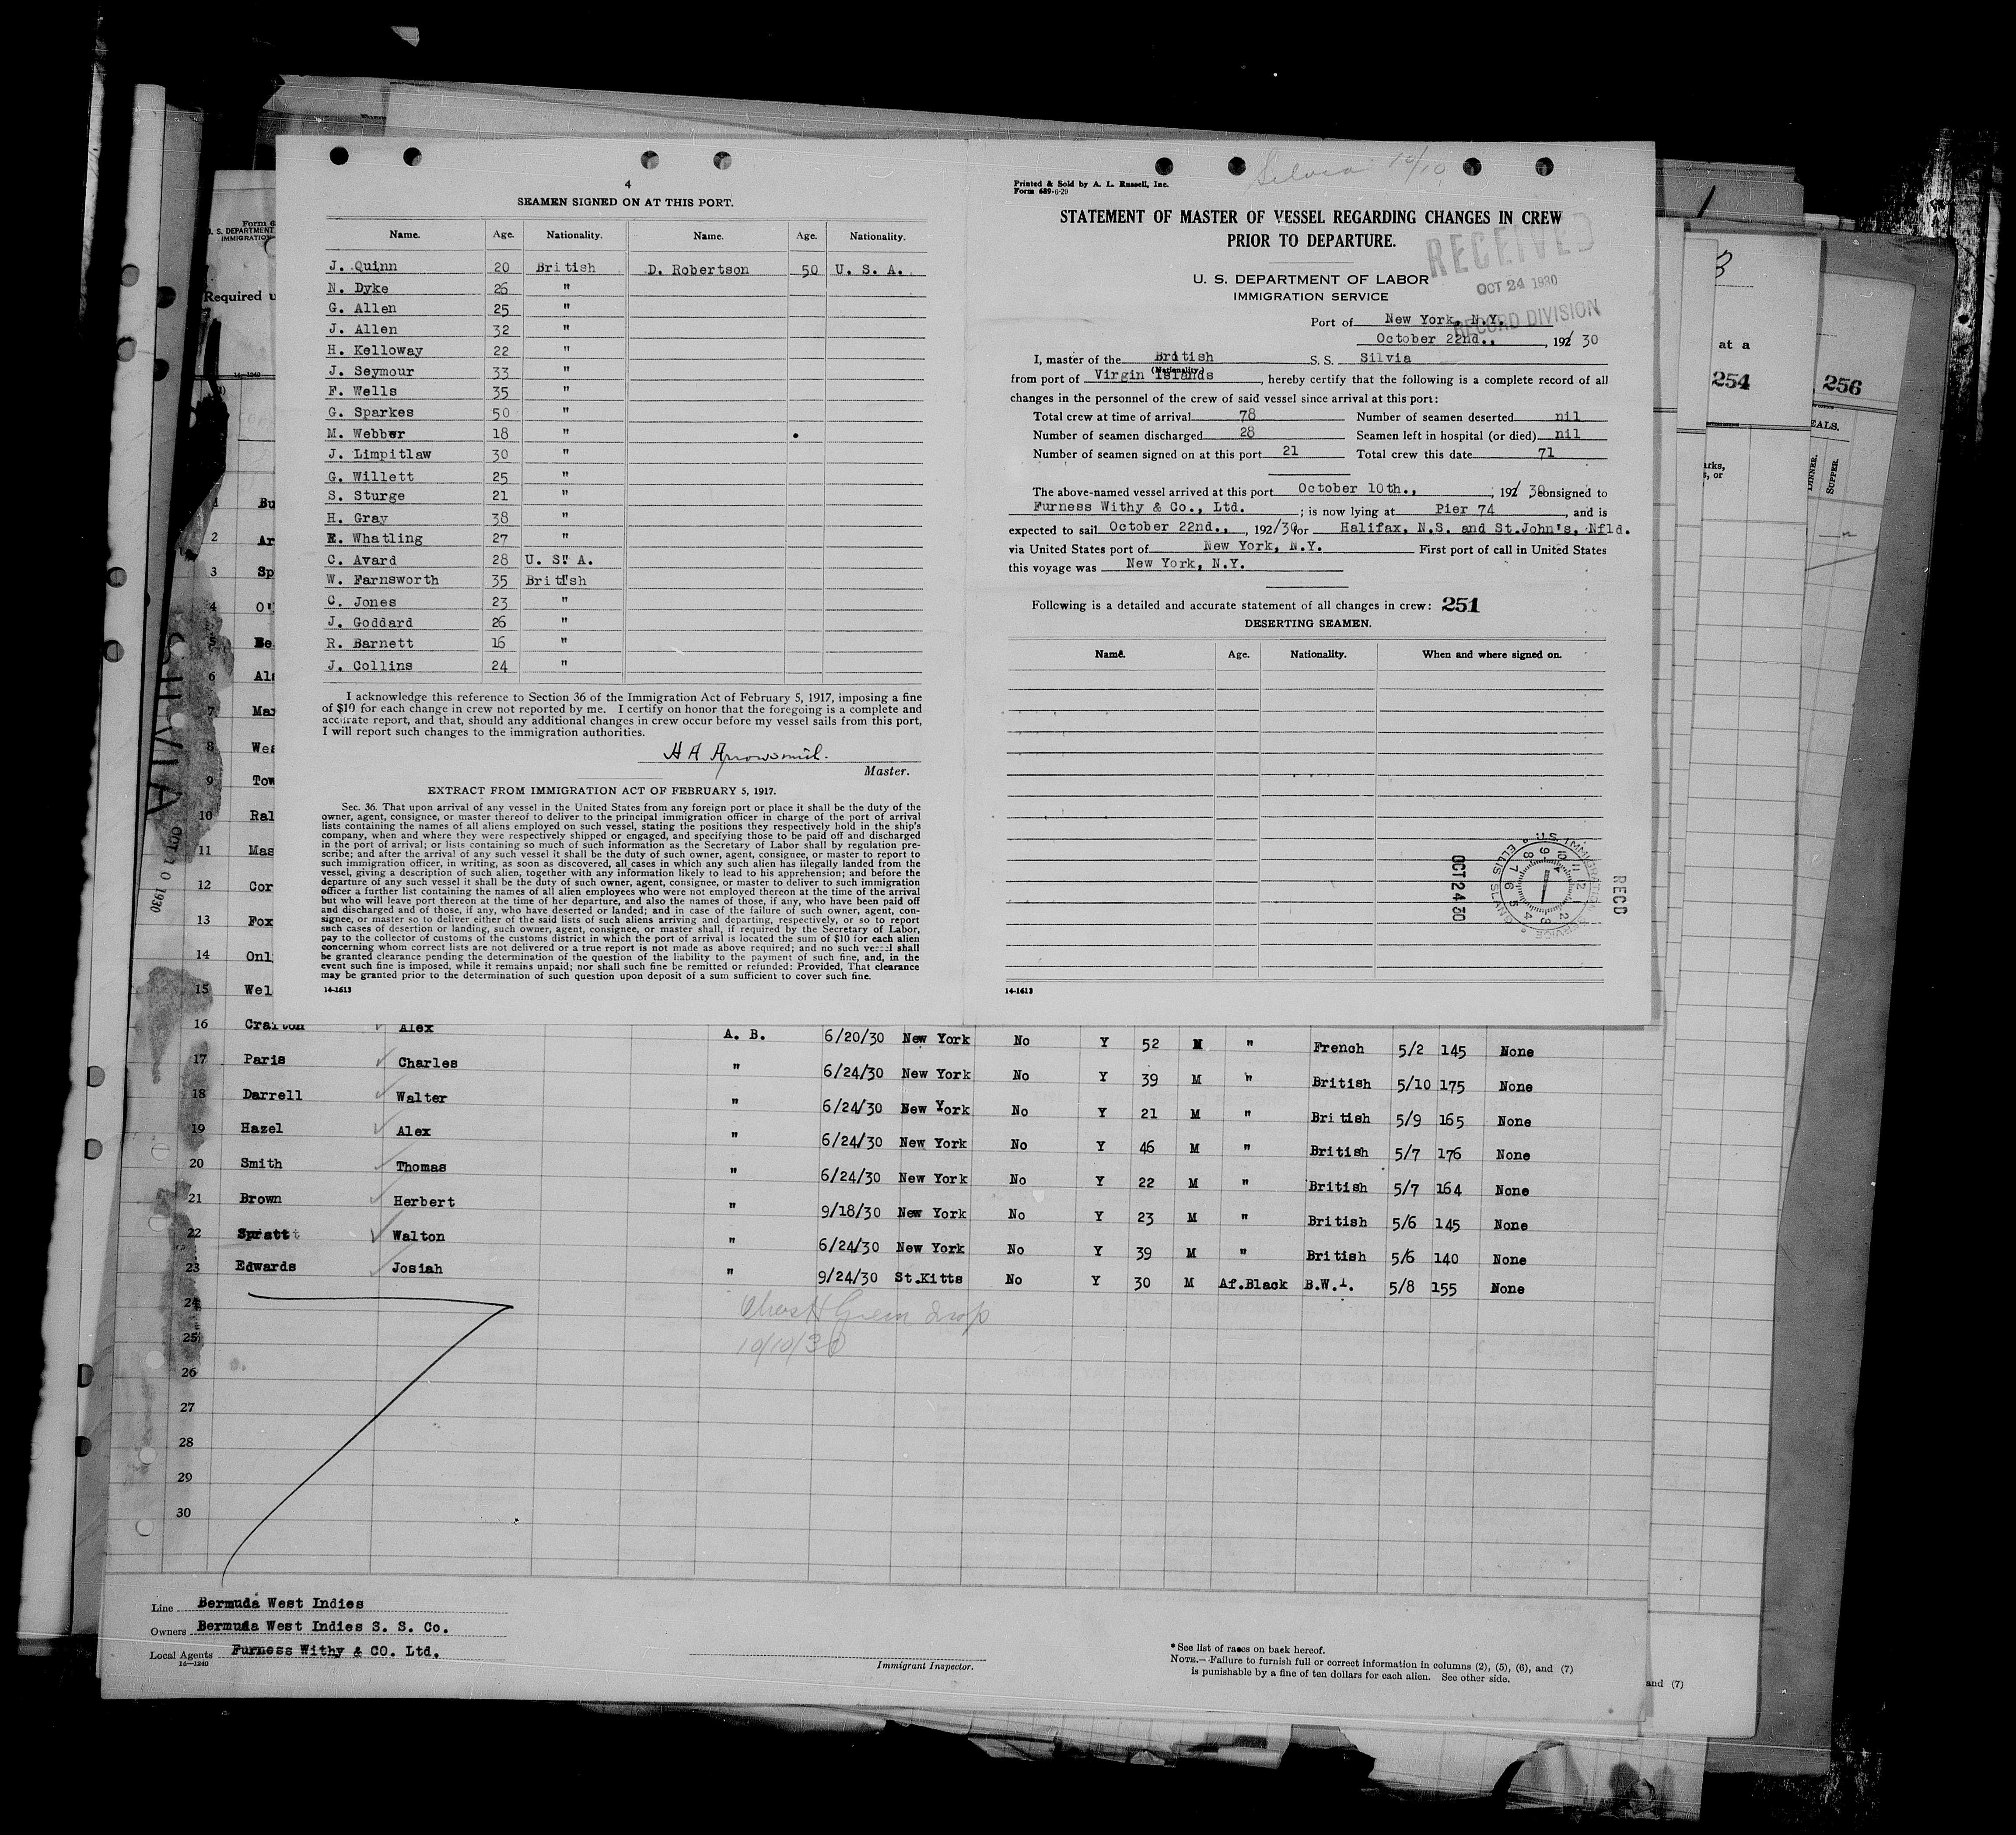 4
SEAMEN SIGNED ON AT THIS PORT.
Name. Age. Nationality. Name. Age. Nationality.
J. Quinn 20 British D. Robertson 50 U. S. A.
N. Dyke 26 "
G. Allen 25 "
J. Allen 32 "
H. Kelloway 22 "
J. Seymour 33 "
F. Wells 35 "
G. Sparkes 50 "
M. Webber 18 "
J. Limpitlaw 30 "
G. Willett 25 "
S. Sturge 21 "
H. Gray 38 "
E. Whatling 27 "
C. Avard 28 U. S. A.
W. Farnsworth 35 British
C. Jones 23 "
J. Goddard 26 "
R. Barnett 16 "
J. Collins 24 "
I acknowledge this reference to Section 36 of the Immigration Act of February 5, 1917, imposing a fine
of $10 for each change in crew not reported by me. I certify on honor that the foregoing is a complete and
accurate report, and that, should any additional changes in crew occur before my vessel sails from this port,
I will report such changes to the immigration authorities.
H A Arrowsmith.
Master.
EXTRACT FROM IMMIGRATION ACT OF FEBRUARY 5, 1917.
Sec. 36. That upon arrival of any vessel in the United States from any foreign port or place it shall be the duty of the
owner, agent, consignee, or master thereof to deliver to the principal immigration officer in charge of the port of arrival
lists containing the names of all aliens employed on such vessel, stating the positions they respectively hold in the ship's
company, when and where they were respectively shipped or engaged, and specifying those to be paid off and discharged
in the port of arrival; or lists containing so much of such information as the Secretary of Labor shall by regulation pre-
scribe; and after the arrival of any such vessel it shall be the duty of such owner, agent, consignee, or master to report to
such immigration officer, in writing, as soon as discovered, all cases in which any such alien has illegally landed from the
vessel, giving a description of such alien, together with any information likely to lead to his apprehension; and before the
departure of any such vessel it shall be the duty of such owner, agent, consignee, or master to deliver to such immigration
officer a further list containing the names of all alien employees who were not employed thereon at the time of the arrival
but who will leave port thereon at the time of her departure, and also the names of those, if any, who have been paid off
and discharged and of those, if any, who have deserted or landed; and in case of the failure of such owner, agent, con-
signee, or master so to deliver either of the said lists of such aliens arriving and departing, respectively, or so to report
such cases of desertion or landing, such owner, agent, consignee, or master shall, if required by the Secretary of Labor,
pay to the collector of customs of the customs district in which the port of arrival is located the sum of $10 for each alien
concerning whom correct lists are not delivered or a true report is not made as above required; and no such vessel shall
be granted clearance pending the determination of the question of the liability to the payment of such fine, and, in the
event such fine is imposed, while it remains unpaid; nor shall such fine be remitted or refunded: Provided, That clearance
may be granted prior to the determination of such question upon deposit of a sum sufficient to cover such fine.
14-1613
Silvia 10/10
Printed & Sold by A. L. Russell, Inc.
Form 689-6-29
STATEMENT OF MASTER OF VESSEL REGARDING CHANGES IN CREW
PRIOR TO DEPARTURE.
RECEIVED
OCT 24 1930
RECORD DIVISION
U. S. DEPARTMENT OF LABOR
IMMIGRATION SERVICE
Port of New York, N.Y.
October 22nd., , 192 30
I, master of the British S. S. Silvia
(Nationality)
from port of Virgin Islands, hereby certify that the following is a complete record of all
changes in the personnel of the crew of said vessel since arrival at this port:
Total crew at time of arrival 78 Number of seamen deserted nil
Number of seamen discharged 28 Seamen left in hospital (or died) nil
Number of seamen signed on at this port 21 Total crew this date 71
The above-named vessel arrived at this port October 10th., , 192 30 consigned to
Furness Withy & Co., Ltd. ; is now lying at Pier 74 , and is
expected to sail October 22nd., , 192/30 for Halifax, N.S. and St.John's, Nfld.
via United States port of New York, N.Y. First port of call in United States
this voyage was New York, N.Y.
Following is a detailed and accurate statement of all changes in crew: 251
DESERTING SEAMEN.
Name. Age. Nationality. When and where signed on.
U.S. IMMIGRATION SERVICE ELLIS ISLAND
OCT 24 30
RECD
14-1613
Form 6
U. S. DEPARTMENT
IMMIGRATION
Required u
SILVIA
OCT 10 1930
1 Bu
2 Ar
3 Sp
4 O'
5 Be
6 Al
7 Ma
8 Wes
9 Tow
10 Ral
11 Mas
12 Cor
13 Fox
14 Onl
15 Wel
16 Crafton Alex A. B. 6/20/30 New York No Y 52 M " French 5/2 145 None
17 Paris Charles " 6/24/30 New York No Y 39 M " British 5/10 175 None
18 Darrell Walter " 6/24/30 New York No Y 21 M " British 5/9 165 None
19 Hazel Alex " 6/24/30 New York No Y 46 M " British 5/7 176 None
20 Smith Thomas " 6/24/30 New York No Y 22 M " British 5/7 164 None
21 Brown Herbert " 9/18/30 New York No Y 23 M " British 5/6 145 None
22 Spratt Walton " 6/24/30 New York No Y 39 M " British 5/6 140 None
23 Edwards Josiah " 9/24/30 St.Kitts No Y 30 M Af.Black B.W.I. 5/8 155 None
24
25
26
27
28
29
30
10/10/30
Line Bermuda West Indies
Owners Bermuda West Indies S. S. Co.
Local Agents Furness Withy & CO. Ltd.
16-1240
Immigrant Inspector.
*See list of races on back hereof.
NOTE.—Failure to furnish full or correct information in columns (2), (5), (6), and (7)
is punishable by a fine of ten dollars for each alien. See other side.
and (7)
at a
254
256
EALS.
DINNER.
SUPPER.